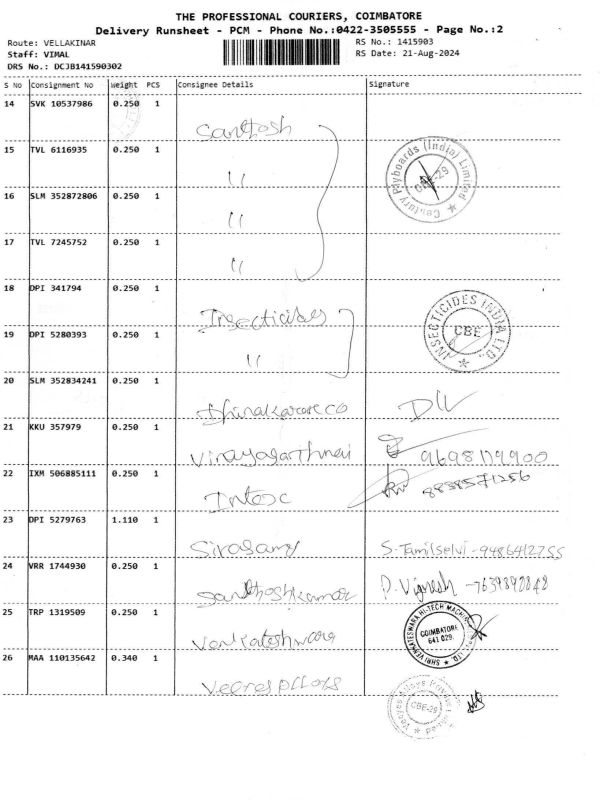 THE PROFESSIONAL COURIERS, COIMBATORE
Delivery Runsheet - PCM - Phone No.:0422-3505555 - Page No.:2
Route: VELLAKINAR
RS No.: 1415903
Staff: VIMAL
RS Date: 21-Aug-2024
DRS No.: DCJB141590302
S No Consignment No Weight PCS Consignee Details Signature
14 SVK 10537986 0.250 1
Santhosh
15 TVL 6116935 0.250 1
"
Century Plyboards (India) Limited
CBE-29
16 SLM 352872806 0.250 1
"
17 TVL 7245752 0.250 1
"
18 DPI 341794 0.250 1
Insecticides
INSECTICIDES INDIA LTD.,
CBE
19 DPI 5280393 0.250 1
"
20 SLM 352834241 0.250 1
21 KKU 357979 0.250 1
22 IXM 506885111 0.250 1
8838571256
Intec
23 DPI 5279763 1.110 1
S. Tamilselvi - 9486412755
24 VRR 1744930 0.250 1
Santhoshkumar P. Vignesh - 7639892848
25 TRP 1319509 0.250 1
Venkateshwara
SHRI VENKATESWARA HI-TECH MACHINERY
COIMBATORE
641 029.
26 MAA 110135642 0.340 1
CBE-29